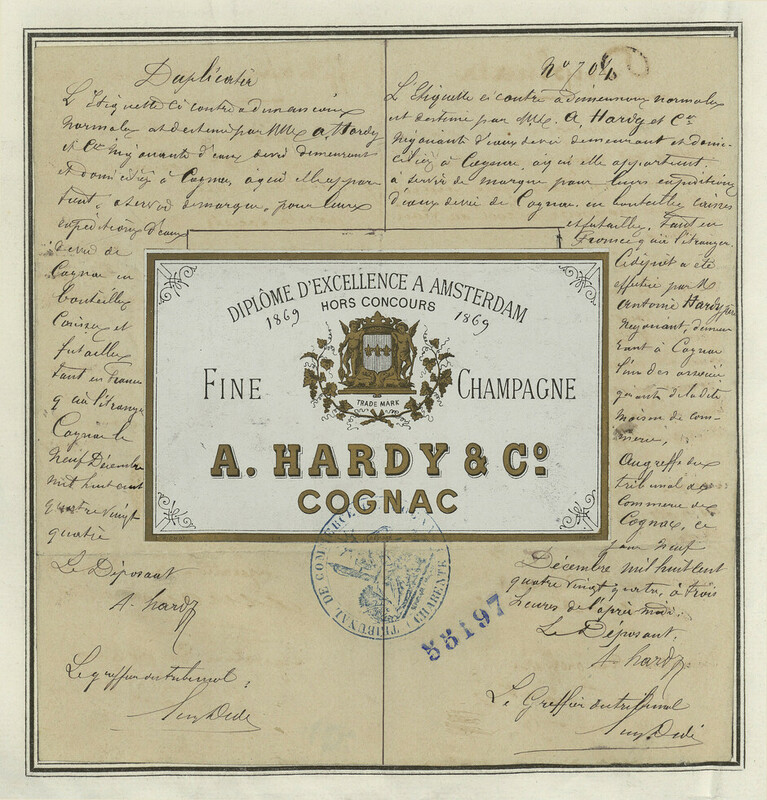 Duplicatta
L'Etiquette ci contre a dimensions
normales est destinée par MM. A. Hardy
et Cie Négociants d'eaux devie demeurant
et domiciliés à Cognac, à qui elle appar
tient, à servir de marque, pour leurs
expéditions d'eaux
devie de
Cognac en
bouteilles
Caisses et
futailles
tant en France
q à l'étranger
Cognac le
neuf Décembre
mil huit cent
quatre vingt
quatre
Le Déposant
A. Hardy
Le greffier du tribunal
No 704
L'Etiquette ci contre à dimensions normales
est destinée par MM. A. Hardy et Cie
Négociants d'eaux devie demeurant et domi-
ciliés à Cognac, à qui elle appartient.
à servir de marque pour leurs expéditions
d'eaux devie de Cognac. en bouteilles caisses
et futailles. tant en
France qu'à l'étranger.
Ce dépôt a été
effectué par M
Antoine Hardy
Négociant, demeu
rant à Cognac
l'un des associés
gérants de la dite
maison de com-
merce,
Au greffe du
tribunal de
Commerce de
Cognac, ce
jour neuf
Décembre mil huit cent
quatre vingt quatre, à trois
heures de l'après midi.
Le Déposant.
A. Hardy
Le Greffier du tribunal
DIPLÔME D'EXCELLENCE A AMSTERDAM
1869 HORS CONCOURS 1869
FINE CHAMPAGNE
TRADE MARK
A. HARDY & Co
COGNAC
TRIBUNAL DE COMMERCE
CHARENTE
55197